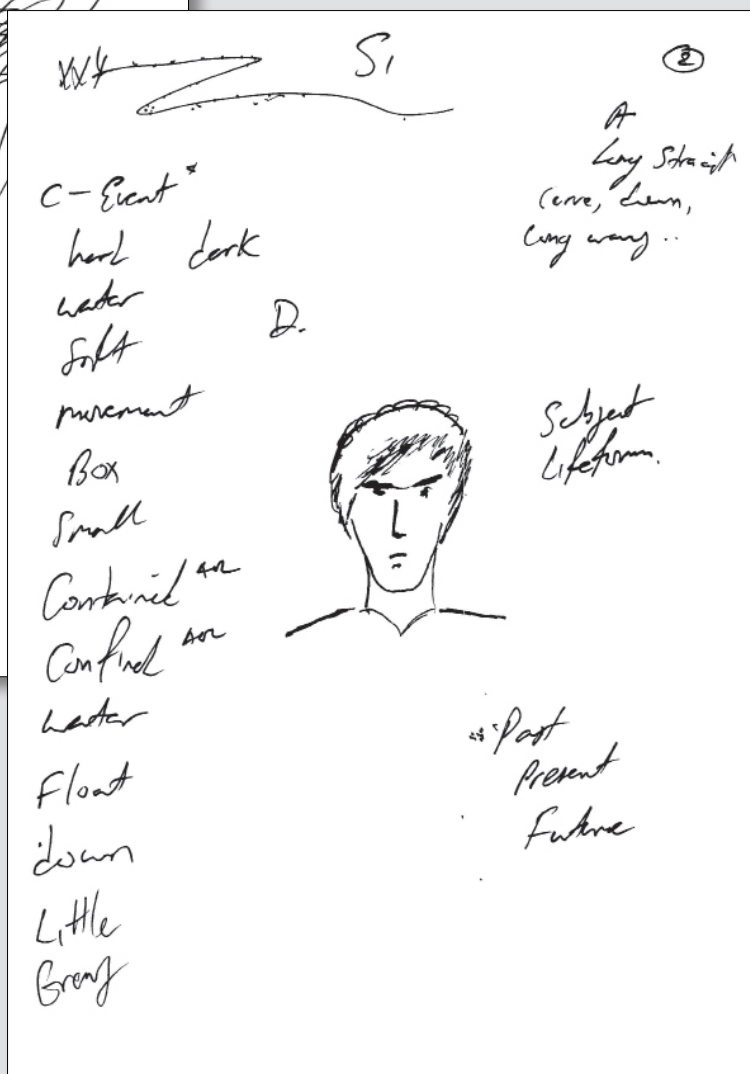 XXY
S1
2
A
Long Straight
Curve, down,
long way ..
C - Event *
hard dark
water
Soft
D.
movement
Box
Small
Contained AOL
Confined AOL
water
Float
down
Little
Subject
Lifeform.
Past
Present
Future